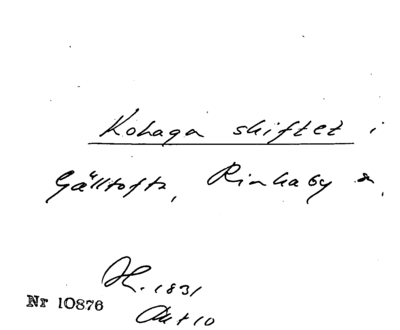 Kohaga skiftet i
Gälltofta, Rinkaby s.
H. 1831
Nr 10876
Akt 10